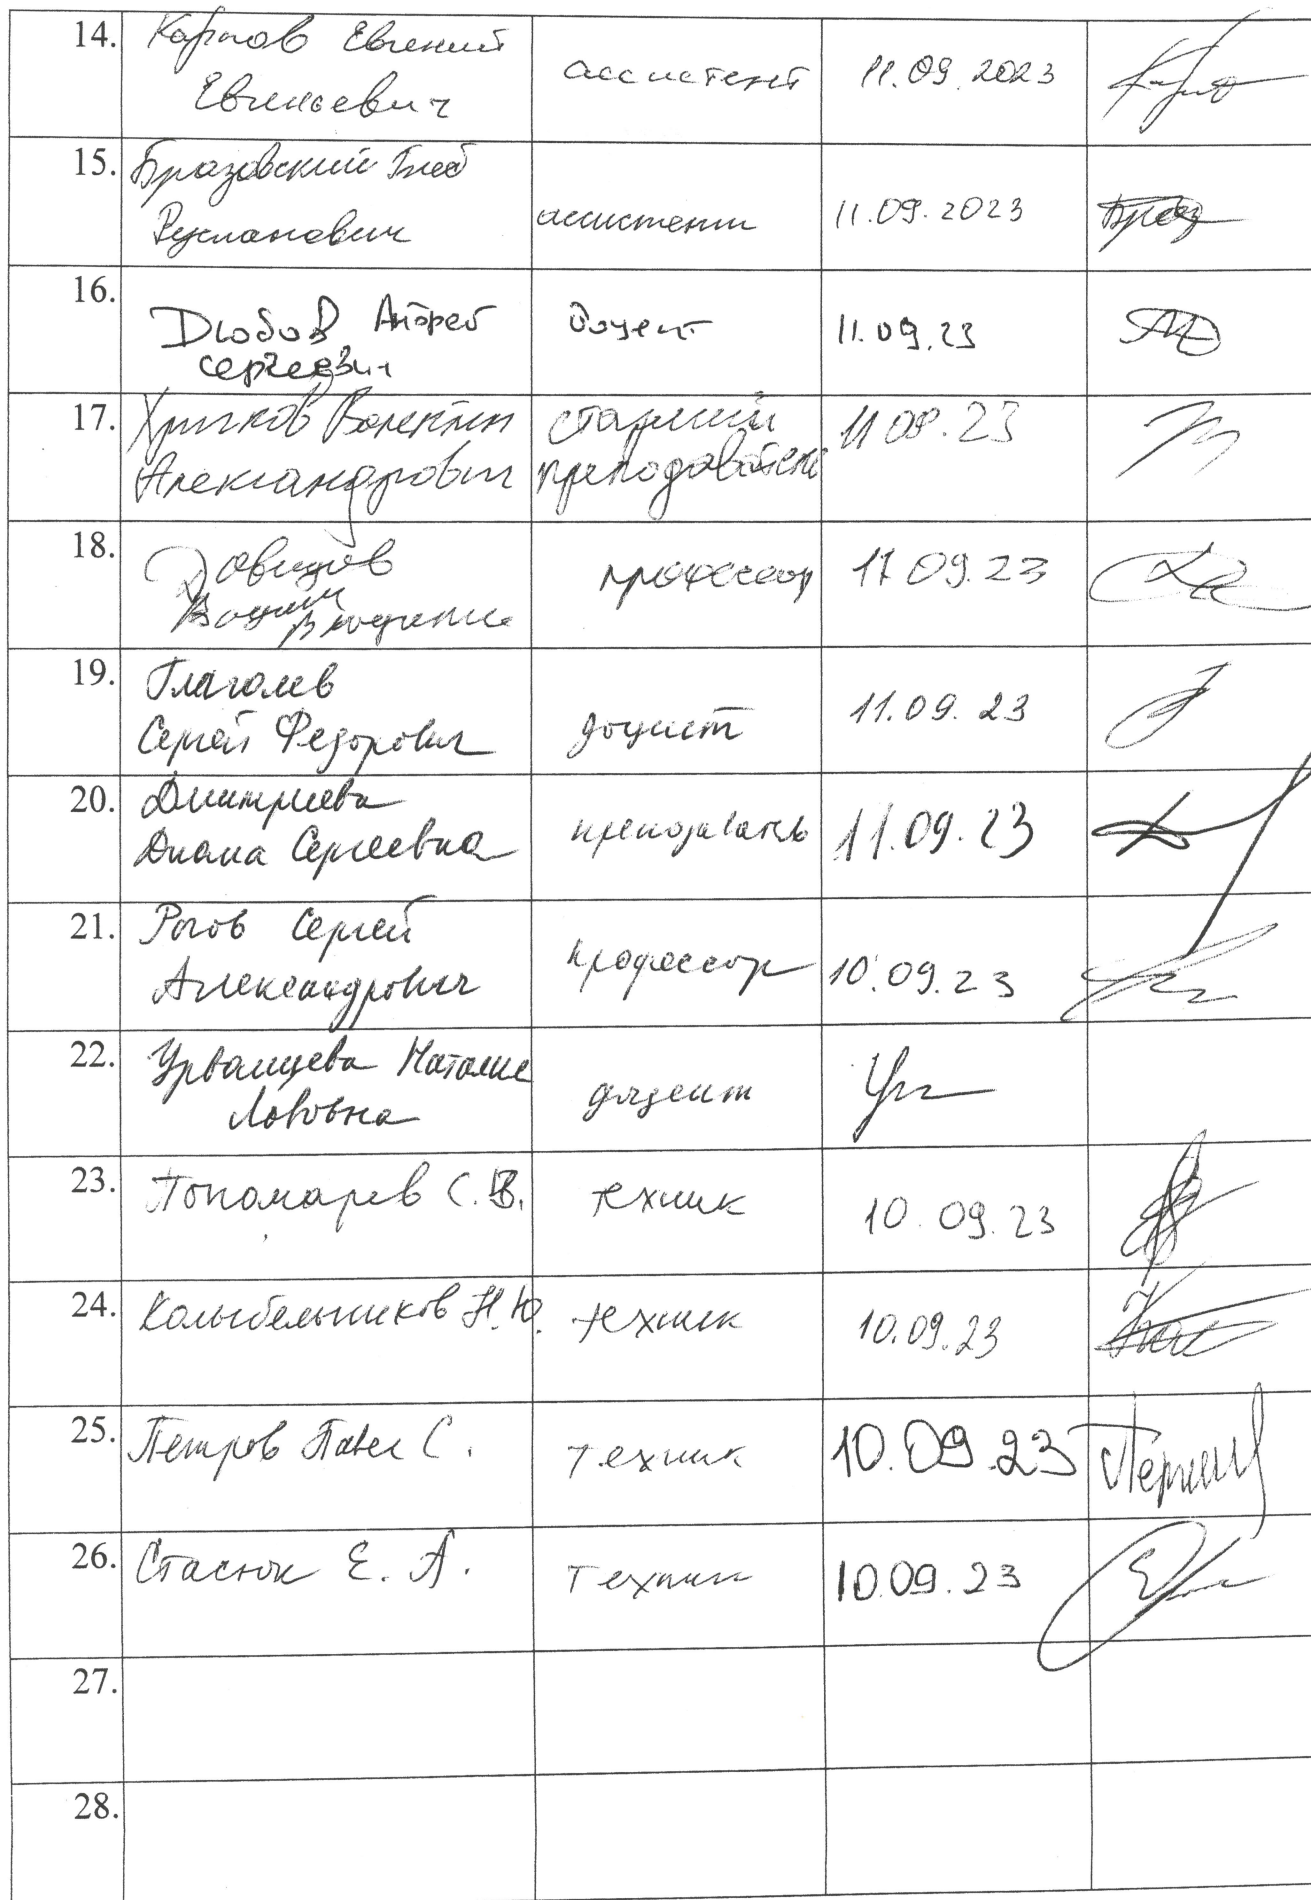 14. Карпов Евгений ассистент 11.09.2023
Евгеньевич
15. Бразовский Глеб
Русланович ассистент 11.09.2023
16. Дюбов Андрей доцент 11.09.23
Сергеевич
17. Валентин старший 11 09.23
Александрович преподаватель
18. Давидов профессор 11.09.23
Вадим
19. Глаголев
Сергей Федорович доцент 11.09.23
20. Дмитриева
Диана Сергеевна преподаватель 11.09.23
21. Рогов Сергей
Александрович профессор 10.09.23
22. Урванцева Наталия
Львовна доцент
23. Пономарев С.В. техник 10.09.23
24. Колыбельников Н.Ю. техник 10.09.23
25. Петров Павел С. техник 10.09.23
26. Стасюк Е. А. техник 10.09.23
27.
28.